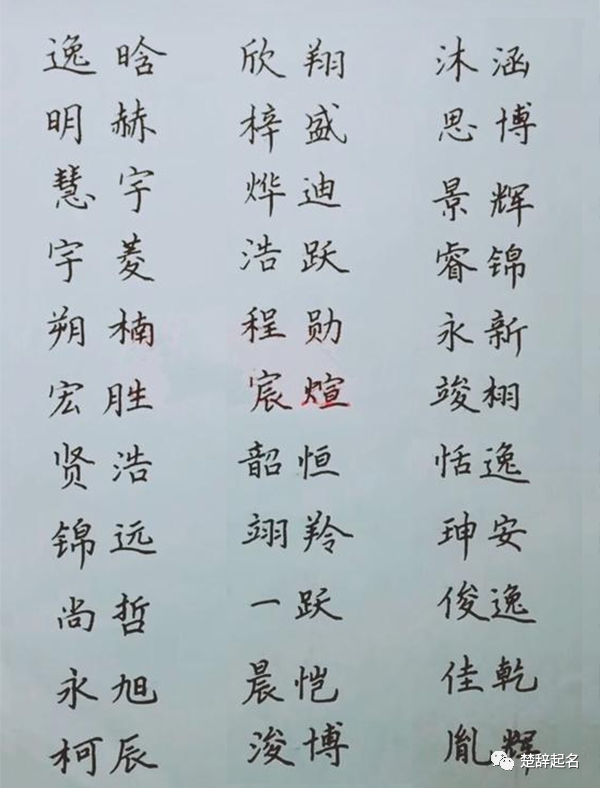 逸晗 欣翔 沐涵
明赫 梓盛 思博
慧宇 烨迪 景辉
宇菱 浩跃 睿锦
朔楠 程勋 永新
宏胜 宸煊 竣栩
贤浩 韶恒 恬逸
锦远 翊羚 珅安
尚哲 一跃 俊逸
永旭 晨恺 佳乾
柯辰 浚博 胤辉
楚辞起名